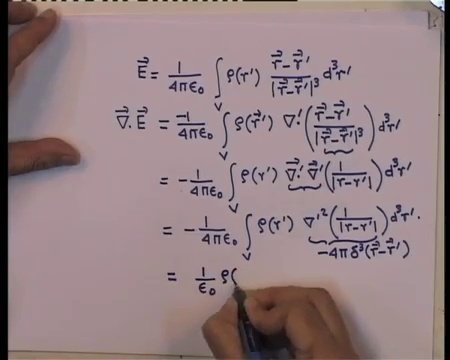 E⃗ = 1/4πε₀ ∫_V ρ(r') (r⃗-r⃗')/|r⃗-r⃗'|³ d³r'
∇⃗.E⃗ = -1/4πε₀ ∫_V ρ(r⃗') ∇!((r⃗-r⃗')/|r⃗-r⃗'|³) d³r'
= -1/4πε₀ ∫_V ρ(r') ∇⃗'.∇⃗'(1/|r-r'|) d³r'
= -1/4πε₀ ∫_V ρ(r') ∇'²(1/|r-r'|) d³r'.
-4πδ³(r⃗-r⃗')
= 1/ε₀ ρ(